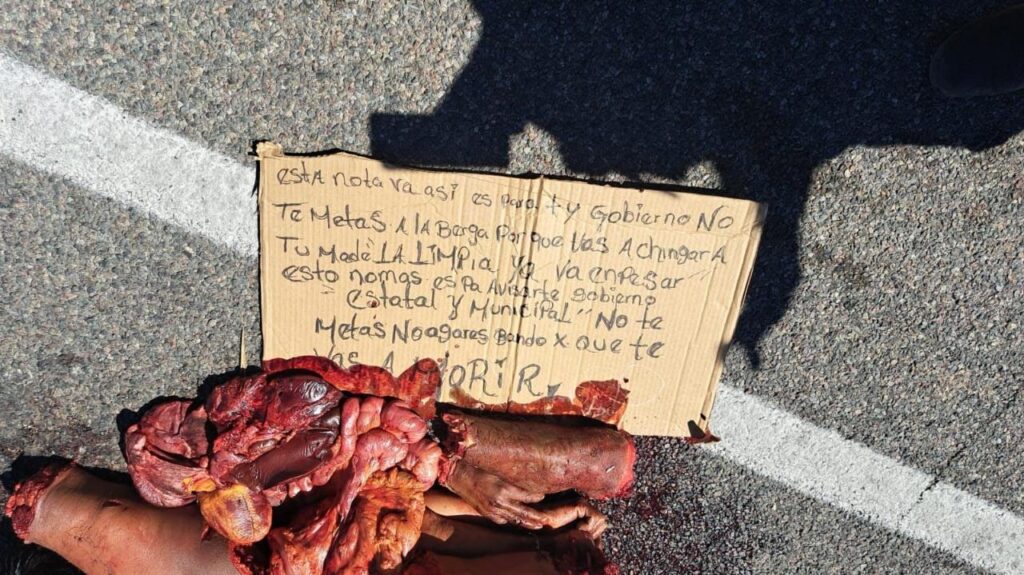 estA nota va así es para ty Gobierno NO
Te Metas A la Berga Porque Vas A chingar A
Tu Madé LA LIMPIA Ya va enpesar
esto nomas es pa Avisarte gobierno
estatal y Municipal" No te
Metas No agares Bando x que te
Vas A MORIR.